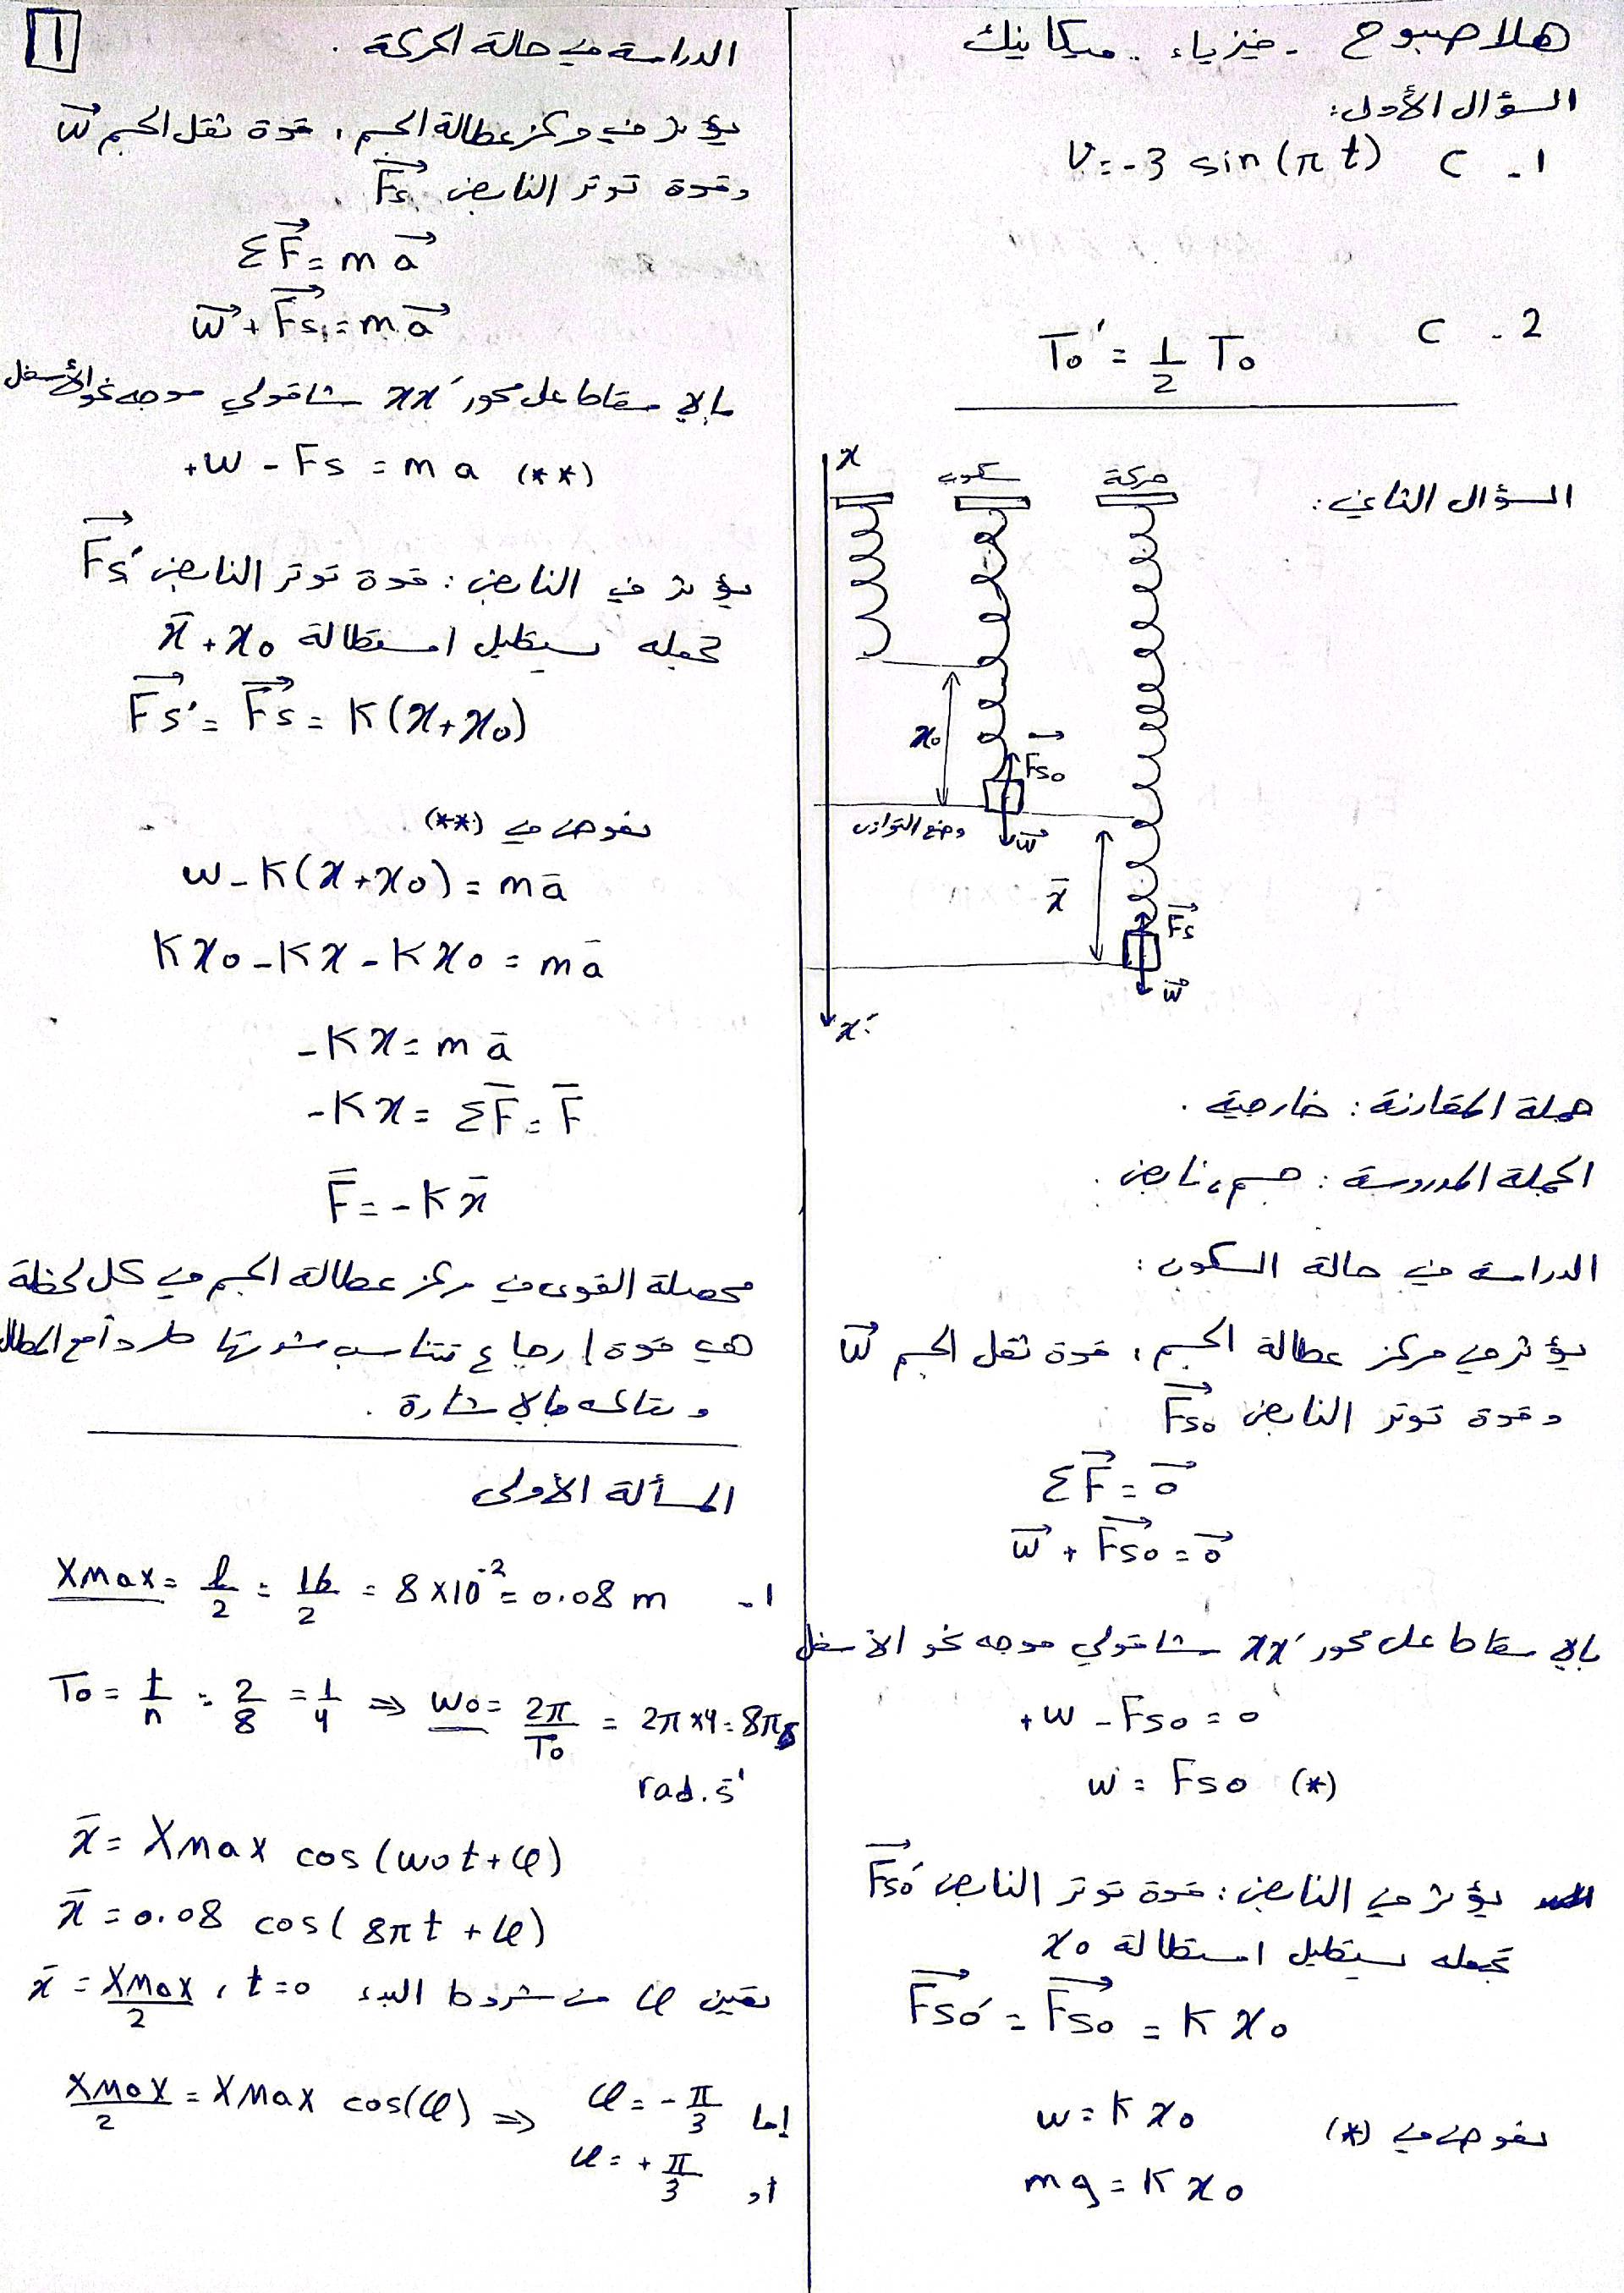 هلا صبوح - فيزياء - ميكانيك
السؤال الأول:
1 - C v = -3 sin(π t)
2 - C T₀' = 1/2 T₀
السؤال الثاني:
حركة
سكون
x
x₀
Fs₀
وضع التوازن
w
x̄
Fs
w
x'
جملة المقارنة: خارجية.
الجملة المدروسة: جسم، نابض.
الدراسة في حالة السكون:
يؤثر في مركز عطالة الجسم، قوة ثقل الجسم w⃗
وقوة توتر النابض F⃗s₀
ΣF⃗ = 0⃗
w⃗ + F⃗s₀ = 0⃗
بالإسقاط على محور xx' شاقولي موجه نحو الأسفل
+w - Fs₀ = 0
w = Fs₀ (*)
يؤثر في النابض: قوة توتر النابض F⃗s₀'
تجعله يستطيل استطالة x₀
F⃗s₀' = F⃗s₀ = K x₀
نعوض في (*)
w = K x₀
mg = K x₀
1
الدراسة في حالة الحركة.
يؤثر في مركز عطالة الجسم، قوة ثقل الجسم w⃗
وقوة توتر النابض F⃗s.
ΣF⃗ = m a⃗
w⃗ + F⃗s = m a⃗
بالإسقاط على محور xx' شاقولي موجه نحو الأسفل
+w - Fs = m a (**)
يؤثر في النابض: قوة توتر النابض F⃗s'
تجعله يستطيل استطالة x̄ + x₀
F⃗s' = F⃗s = K(x + x₀)
نعوض في (**)
w - K(x + x₀) = m ā
K x₀ - K x - K x₀ = m ā
-K x = m ā
-K x = ΣF̄ = F̄
F̄ = -K x̄
محصلة القوى في مركز عطالة الجسم في كل لحظة
هي قوة إرجاع تتناسب شدتها طرداً مع المطال
وتعاكسه بالإشارة.
المسألة الأولى
1 - Xmax = l/2 = 16/2 = 8 × 10⁻² = 0.08 m
T₀ = t/n = 2/8 = 1/4 ⇒ ω₀ = 2π/T₀ = 2π × 4 = 8π
rad.s⁻¹
x̄ = Xmax cos(ω₀t + φ)
x̄ = 0.08 cos(8πt + φ)
نعين φ من شروط البدء t = 0، x̄ = Xmax/2
Xmax/2 = Xmax cos(φ) ⇒ إما φ = -π/3
أو φ = +π/3